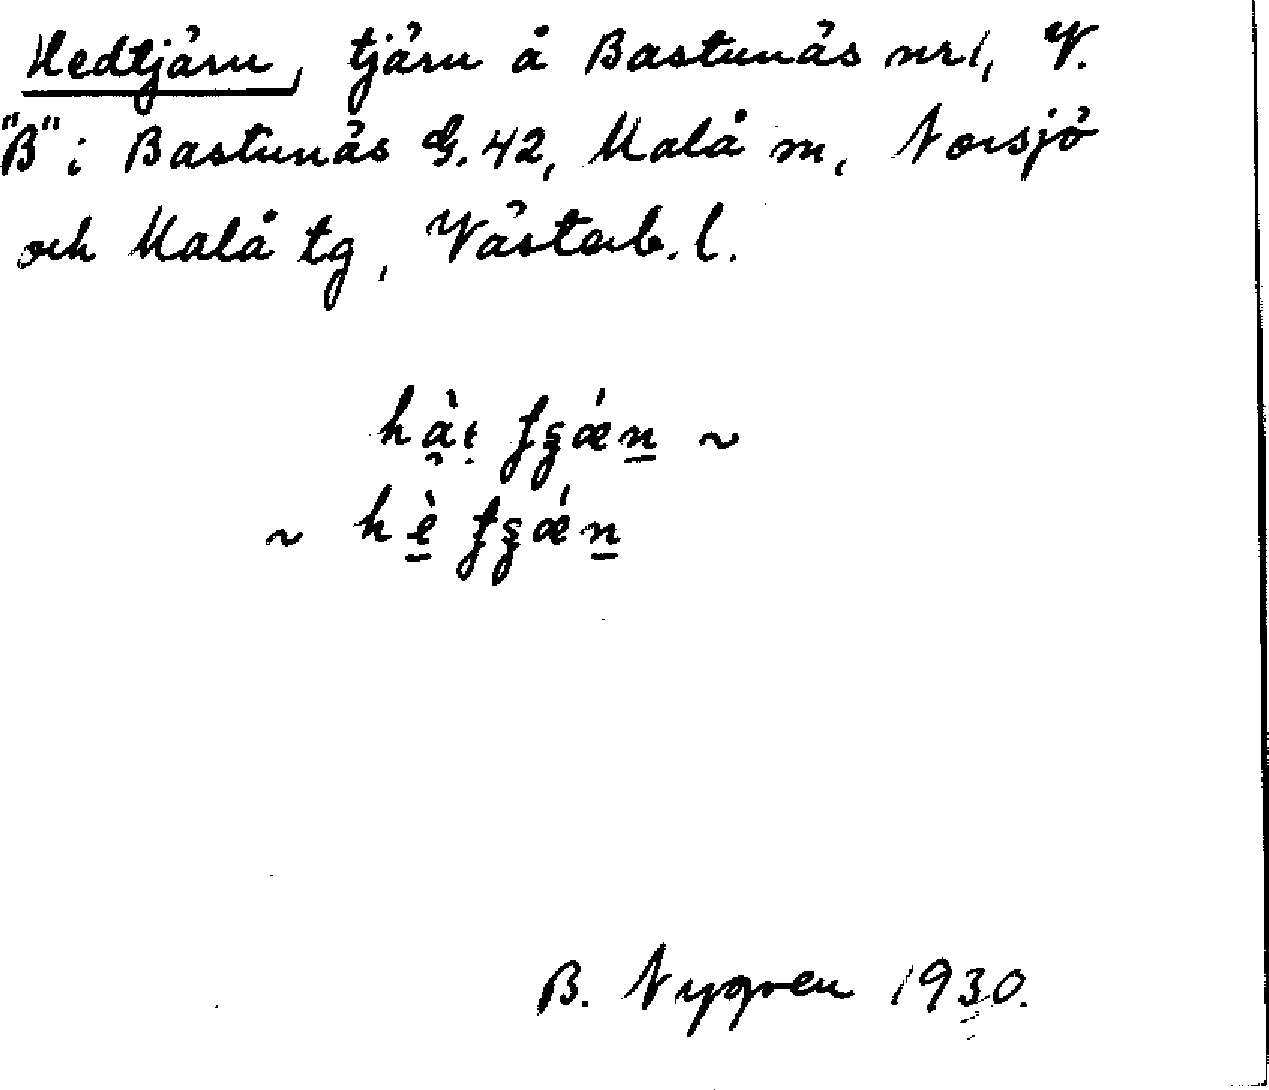 Hedtjärn, tjärn å Bastunäs nr 1, V.
"B" i Bastunäs G. 42, Malå m, Norsjö
och Malå tg, Västerb. l.
B. Nygren 1930.